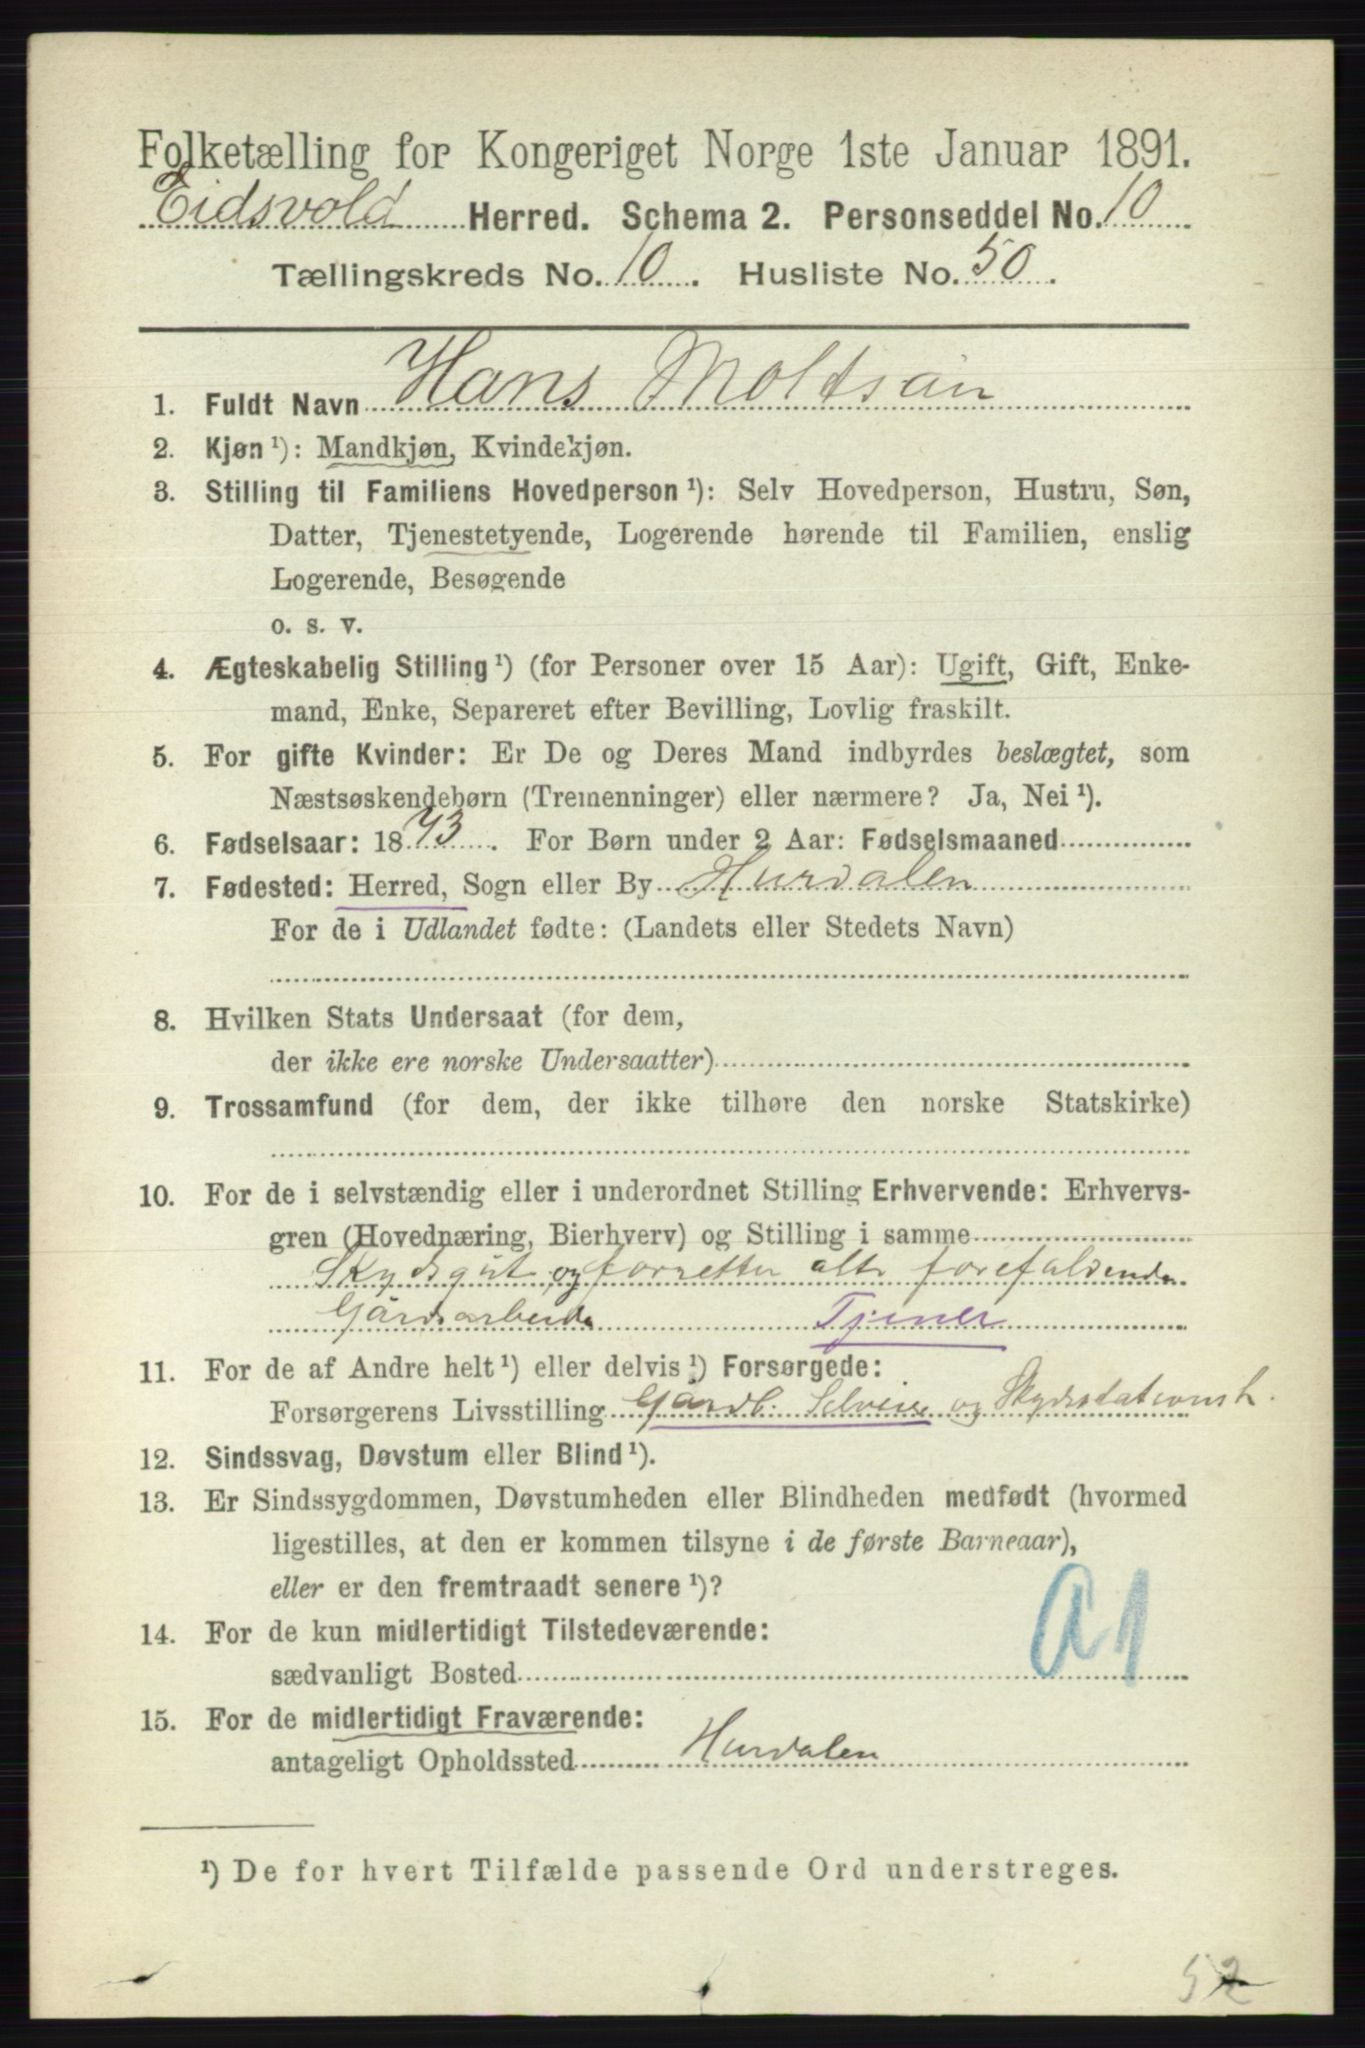 Folketælling for Kongeriget Norge 1ste Januar 1891.
Eidsvold Herred. Schema 2. Personseddel No. 10
Tællingskreds No. 10. Husliste No. 50.
1. Fuldt Navn Hans Moltsán
2. Kjøn ¹): Mandkjøn, Kvindekjøn.
3. Stilling til Familiens Hovedperson ¹): Selv Hovedperson, Hustru, Søn,
Datter, Tjenestetyende, Logerende hørende til Familien, enslig
Logerende, Besøgende
o. s. v.
4. Ægteskabelig Stilling ¹) (for Personer over 15 Aar): Ugift, Gift, Enke-
mand, Enke, Separeret efter Bevilling, Lovlig fraskilt.
5. For gifte Kvinder: Er De og Deres Mand indbyrdes beslægtet, som
Næstsøskendebørn (Tremenninger) eller nærmere? Ja, Nei ¹).
6. Fødselsaar: 1873. For Børn under 2 Aar: Fødselsmaaned
7. Fødested: Herred, Sogn eller By Hurdalen
For de i Udlandet fødte: (Landets eller Stedets Navn)
8. Hvilken Stats Undersaat (for dem,
der ikke ere norske Undersaatter)
9. Trossamfund (for dem, der ikke tilhøre den norske Statskirke)
10. For de i selvstændig eller i underordnet Stilling Erhvervende: Erhvervs-
gren (Hovednæring, Bierhverv) og Stilling i samme
Skydsgut og forretter alt forefaldende
Gårdsarbeide Tjener
11. For de af Andre helt ¹) eller delvis ¹) Forsørgede:
Forsørgerens Livsstilling Gårdb. Selveier og Skydsstationsh.
12. Sindssvag, Døvstum eller Blind ¹).
13. Er Sindssygdommen, Døvstumheden eller Blindheden medfødt (hvormed
ligestilles, at den er kommen tilsyne i de første Barneaar),
eller er den fremtraadt senere ¹)?
14. For de kun midlertidigt Tilstedeværende:
sædvanligt Bosted
A1
15. For de midlertidigt Fraværende:
antageligt Opholdssted Hurdalen
¹) De for hvert Tilfælde passende Ord understreges.
52